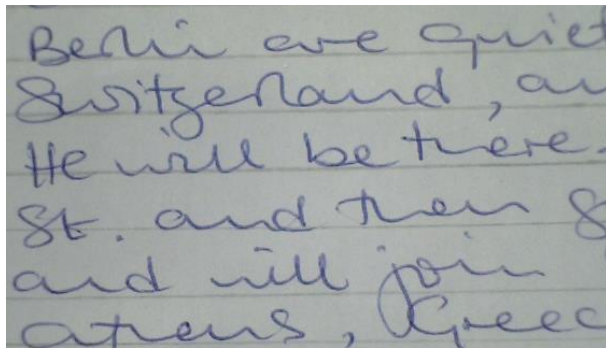 Berlin are quiet
Switzerland, an
He will be there.
St. and then S
and will join
athens, Greec